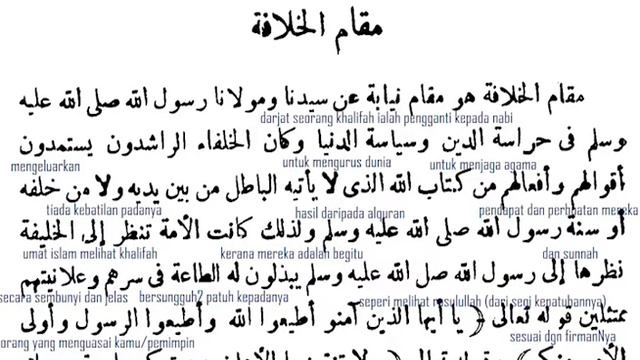 مقام الخلافة
مقام الخلافة هو مقام نيابة عن سيدنا ومولانا رسول الله صلى الله عليه
darjat seorang khalifah ialah pengganti kepada nabi
وسلم فى حراسة الدين وسياسة الدنيا وكان الخلفاء الراشدون يستمدون
mengeluarkan untuk mengurus dunia untuk menjaga agama
أقوالهم وأفعالهم من كتاب الله الذى لا يأتيه الباطل من بين يديه ولا من خلفه
tiada kebatilan padanya hasil daripada alquran pendapat dan perbuatan mereka
أو سنة رسول الله صلى الله عليه وسلم ولذلك كانت الأمة تنظر إلى الخليفة
umat islam melihat khalifah kerana mereka adalah begitu dan sunnah
نظرها إلى رسول الله صل الله عليه وسلم يبذلون له الطاعة فى سرهم وعلانيتهم
secara sembunyi dan jelas bersungguh2 patuh kepadanya seperi melihat rasulullah (dari segi kepatuhannya)
ممتثلين قوله تعالى ﴿ يا أيها الذين آمنو أطيعوا الله وأطيعوا الرسول وأولى
orang yang menguasai kamu/pemimpin sesuai dgn firmanNya